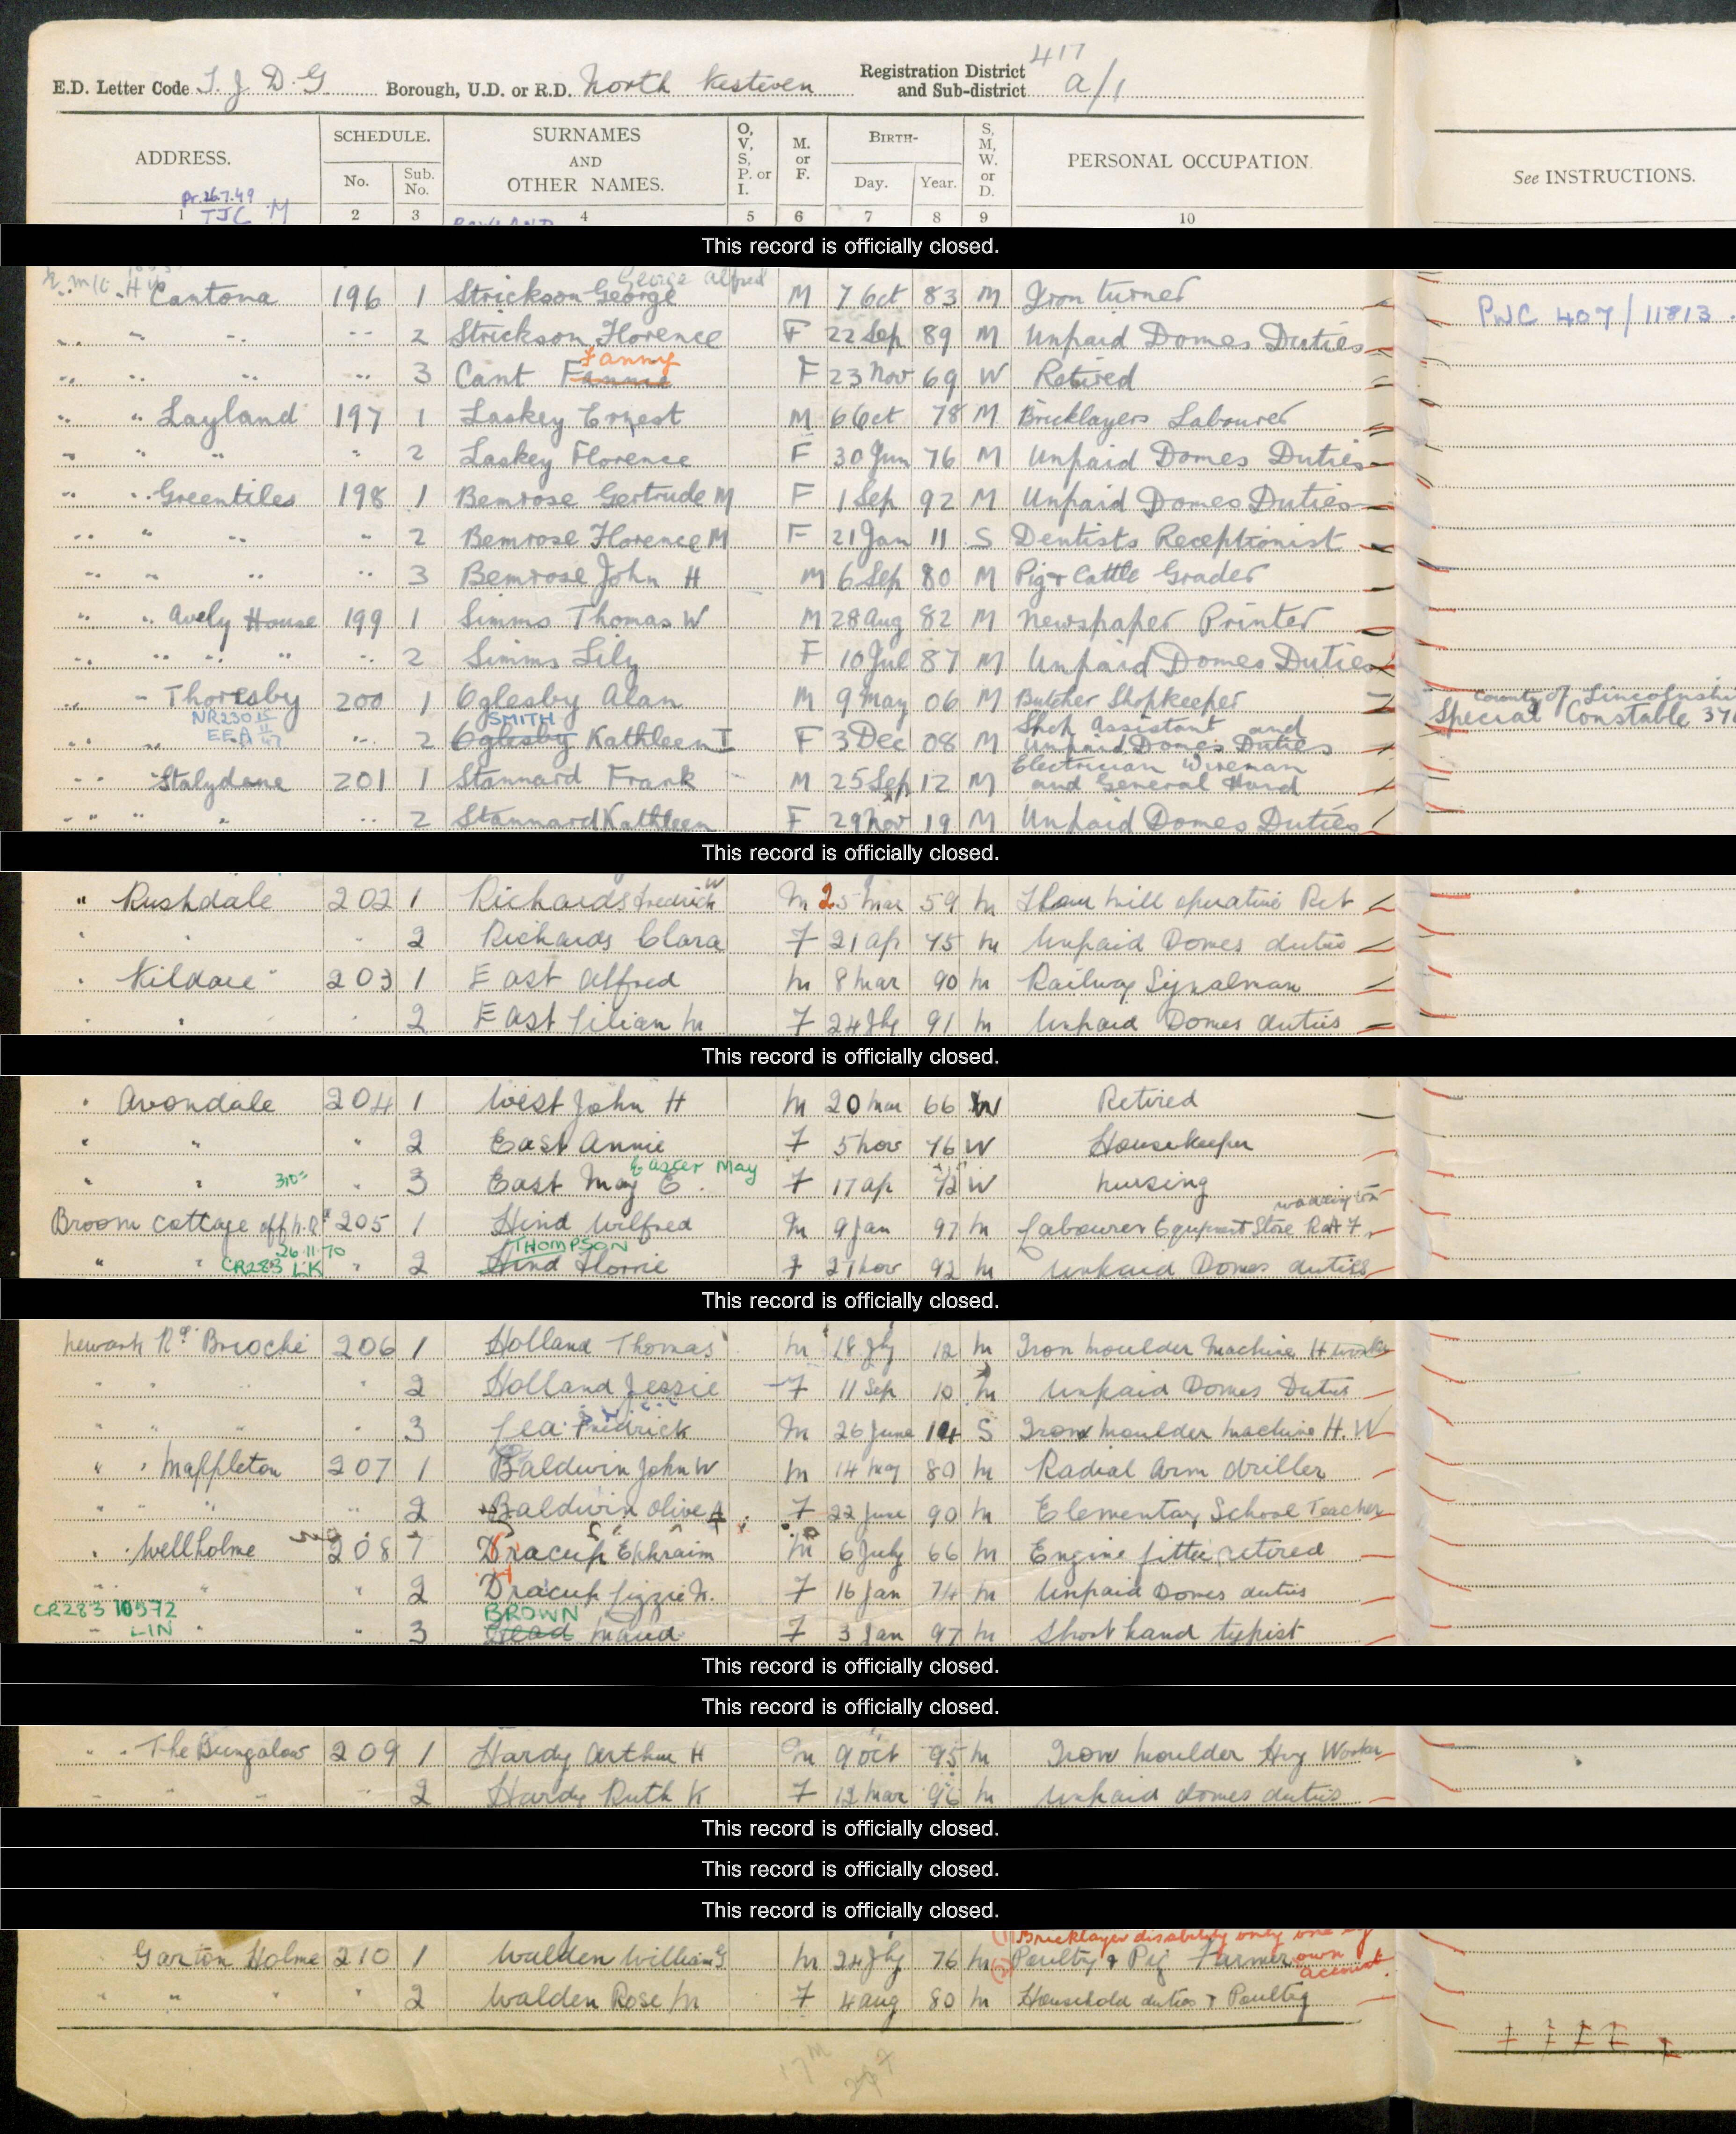 417
E.D. Letter Code T. J. D. G Borough, U.D. or R.D. North Kesteven Registration District and Sub-district a/1
ADDRESS. SCHEDULE. SURNAMES AND OTHER NAMES. O, V, S, P. or I. M. or F. BIRTH- S, M, W. or D. PERSONAL OCCUPATION. See INSTRUCTIONS.
No. Sub. No. Day. Year.
Pr. 26.7.49
TJC M
1 2 3 4 5 6 7 8 9 10
This record is officially closed.
George Alfred
Cantona 196 1 Strickson George M 7 Oct 83 M Iron turner PWC 407/11813
" " " 2 Strickson Florence F 22 Sep 89 M Unpaid Domes Duties
Fanny
" " " " 3 Cant Fannie F 23 Nov 69 W Retired
" " Layland 197 1 Laskey Ernest M 6 Oct 78 M Bricklayers Labourer
" " " " 2 Laskey Florence F 30 Jun 76 M Unpaid Domes Duties
" " Greentiles 198 1 Bemrose Gertrude M F 1 Sep 92 M Unpaid Domes Duties
" " " " 2 Bemrose Florence M F 21 Jan 11 S Dentists Receptionist
" " " " 3 Bemrose John H M 6 Sep 80 M Pig & Cattle Grader
" " Avely House 199 1 Simms Thomas W M 28 Aug 82 M Newspaper Printer
" " " " " 2 Simms Lily F 10 Jul 87 M Unpaid Domes Duties
" " Thoresby 200 1 Oglesby Alan M 9 May 06 M Butcher Shopkeeper County of Lincolnshi
NR230 SMITH Shop Assistant and Special Constable 37
EEA " 2 Oglesby Kathleen I F 3 Dec 08 M Unpaid Domes Duties
Electrician Wireman
" " Stalydene 201 1 Stannard Frank M 25 Sep 12 M and General Hand
" " " " " 2 Stannard Kathleen F 29 Nov 19 M Unpaid Domes Duties
This record is officially closed.
" Rushdale 202 1 Richards Fredrick W M 25 Mar 59 M Flour mill operative Ret
" " " 2 Richards Clara F 21 Ap 75 M Unpaid Domes duties
" Kildare 203 1 East Alfred M 8 Mar 90 M Railway Signalman
" " " 2 East Lilian M F 24 Jly 91 M Unpaid Domes duties
This record is officially closed.
" Avondale 204 1 West John H M 20 Mar 66 W Retired
" " " 2 East Annie F 5 Nov 76 W Housekeeper
Easter May
" " " 3 East May E. F 17 Ap 72 W Nursing
Waddington
Broom Cottage off N. Rd 205 1 Hind Wilfred M 9 Jan 97 M Labourer Equipment Store RAF
26.11.70 THOMPSON
" " CR283 LK " 2 Hind Florrie F 21 Nov 92 M Unpaid Domes duties
This record is officially closed.
Newark Rd Brioche 206 1 Holland Thomas M 18 Jly 12 M Iron Moulder Machine H Worker
" " " " 2 Holland Jessie F 11 Sep 10 M Unpaid Domes Duties
" " " " 3 Lea Fredrick M 26 June 14 S Iron Moulder machine H. W
" " Mappleton 207 1 Baldwin John W M 14 May 80 M Radial Arm driller
" " " " 2 Baldwin Olive A F 22 June 90 M Elementary School Teacher
" " Wellholme 208 1 Dracup Ephraim M 6 July 66 M Engine fitter retired
" " " 2 Dracup Lizzie N. F 16 Jan 74 M Unpaid Domes duties
CR283 10572 BROWN
LIN " 3 Maud F 3 Jan 97 M Short hand typist
This record is officially closed.
This record is officially closed.
" " The Bungalow 209 1 Hardy Arthur H M 9 Oct 95 M Iron Moulder Hvy Worker
" " " " 2 Hardy Ruth K F 12 Mar 96 M Unpaid domes duties
This record is officially closed.
This record is officially closed.
This record is officially closed.
(1) Bricklayer disability only one leg
Garton Holme 210 1 Walden William G M 24 Jly 76 M (2) Poultry & Pig Farmer own account.
" " " " 2 Walden Rose M F 4 Aug 80 M Household duties & Poultry
17 M